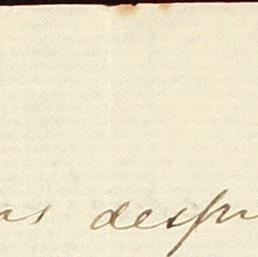 as despu